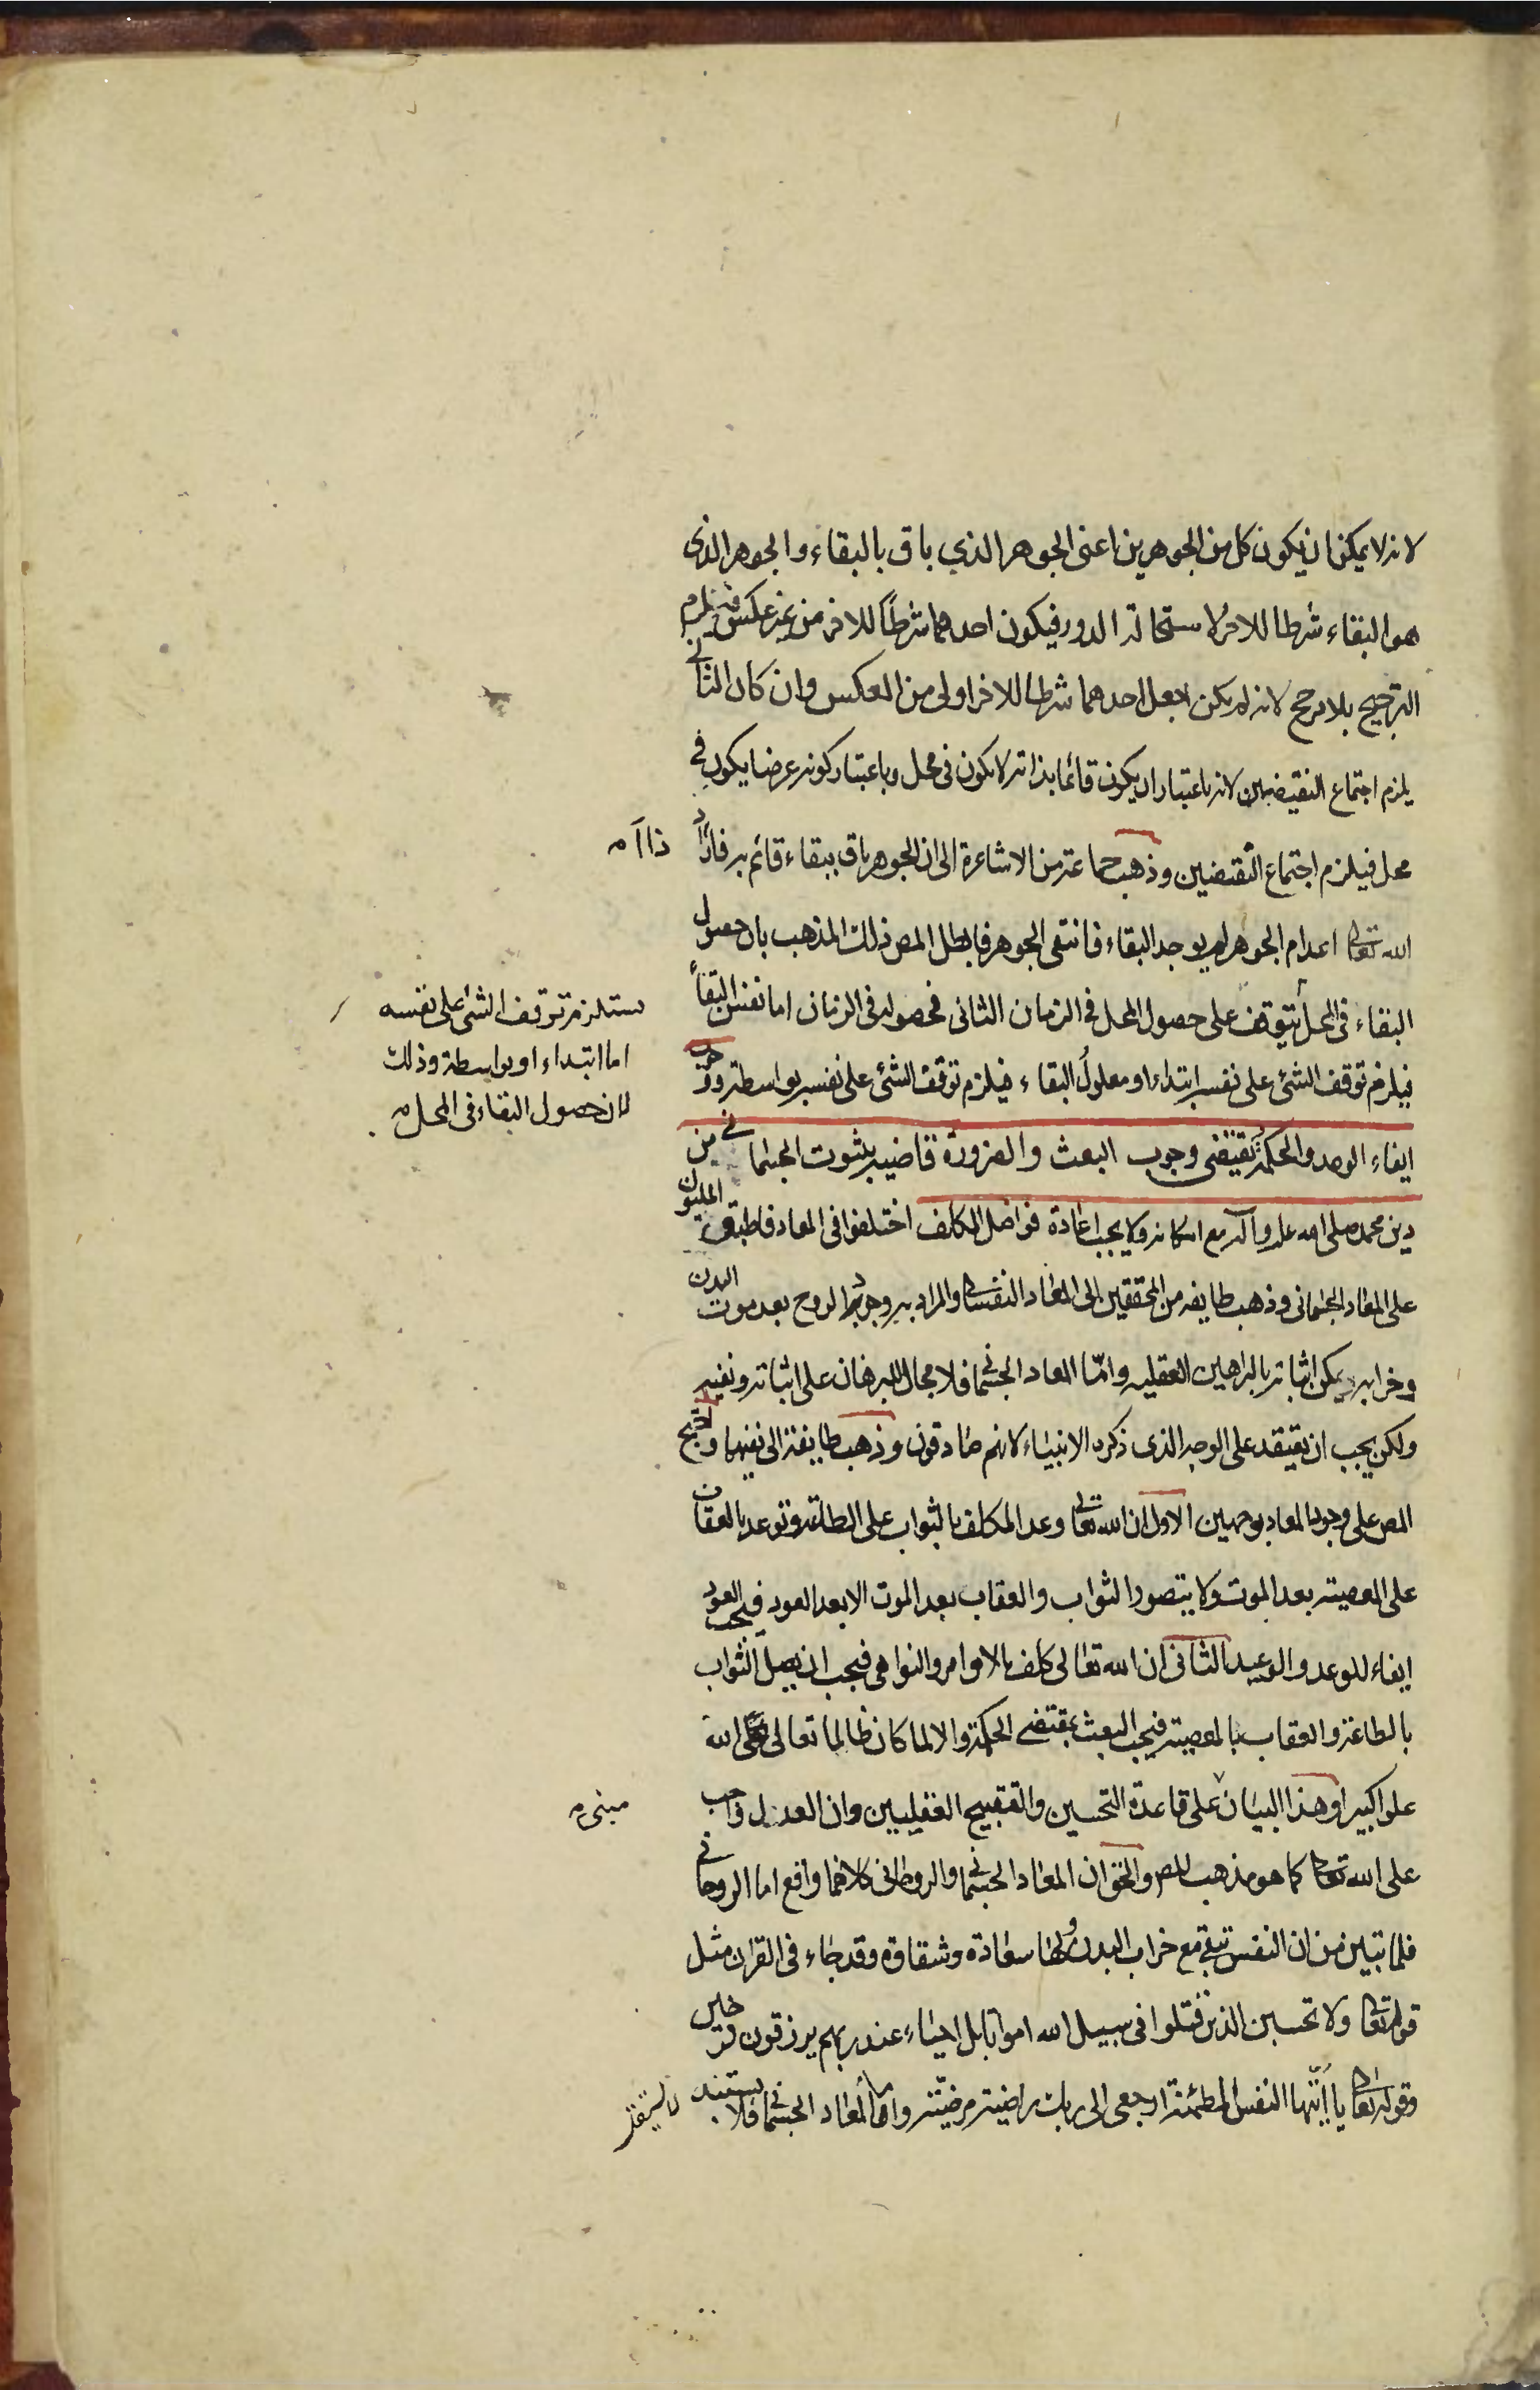 لانه لا يمكن ان يكون كل من الجوهرين اعنى الجوهر الذي باق بالبقاء والجوهر الذى
هو البقاء شرطا للاخر لاستحالة الدور فيكون احدهما شرطاً للاخر من غير عكس فيلزم
الترجيح بلا مرجح لانه لم يكن جعل احدهما شرطا للاخر اولى من العكس وان كان الثانى
يلزم اجتماع النقيضين لانه باعتبار ان يكون قائما بذاته لا يكون فى محل وباعتبار كونه عرضا يكون فى
محل فيلزم اجتماع النقيضين وذهب جماعة من الاشاعرة الى ان الجوهر باق ببقاء قائم به فاذا اراد
ذا آ م
الله تعالى اعدام الجوهر لم يوجد البقاء فانتفى الجوهر فابطل المص ذلك المذهب بان حصول
البقاء فى المحل يتوقف على حصول المحل فى الزمان الثانى فحصوله فى الزمان اما نفس البقاء
يستلزم توقف الشئ على نفسه
اما ابتداء او بواسطة وذلك
لان حصول البقاء فى المحل م
فيلزم توقف الشئ على نفسه ابتداء او معلول البقاء فيلزم توقف الشئ على نفسه بواسطة ووجوب
ايفاء الوعد والحكمة يقتضى وجوب البعث والضرورة قاضيه بثبوت الجسمانى من
دين محمد صلى الله عليه وآله مع امكانه ولا يجب اعادة فواضل المكلف اختلفوا فى المعاد فاطبق المليون
على المعاد الجسمانى وذهب طايفه من المحققين الى المعاد النفسانى والمراد به وجود الروح بعد موت البدن
وخرابه ويمكن اثباته بالبراهين العقليه وامّا المعاد الجسمانى فلا مجال للبرهان على اثباته ونفيه
ولكن يجب ان يعتقد على الوجه الذى ذكره الانبياء لانهم صادقون وذهب طايفة الى نفيهما واحتج
المص على وجوب المعاد بوجهين الاول ان الله تعالى وعد المكلف بالثواب على الطاعة وتوعد بالعقاب
على المعصيته بعد الموت ولا يتصور الثواب والعقاب بعد الموت الا بعد العود فيجب العود
ايفاء للوعد والوعيد الثانى ان الله تعالى كلف بالاوامر والنواهى فيجب ان يصل الثواب
بالطاعة والعقاب بالمعصيته فيجب البعث بمقتضى الحكمة والا لما كان ظالما تعالى الله
علوا كبيرا وهذا البيان على قاعدة التحسين والتقبيح العقليين وان العدل واجب
مبنى م
على الله تعالى كما هو مذهب المص والحق ان المعاد الجسمانى والروحانى كلاهما واقع اما الروحانى
فلما تبين من ان النفس تبقى مع خراب البدن ولها سعادة وشقاوة وقد جاء فى القران مثل
قوله تعالى ولا تحسبن الذين قتلوا فى سبيل الله امواتا بل احياء عند ربهم يرزقون فرحين
وقوله تعالى يا ايّتها النفس المطمئنة ارجعى الى ربك راضية مرضيّته واما المعاد الجسمانى فلا يستند